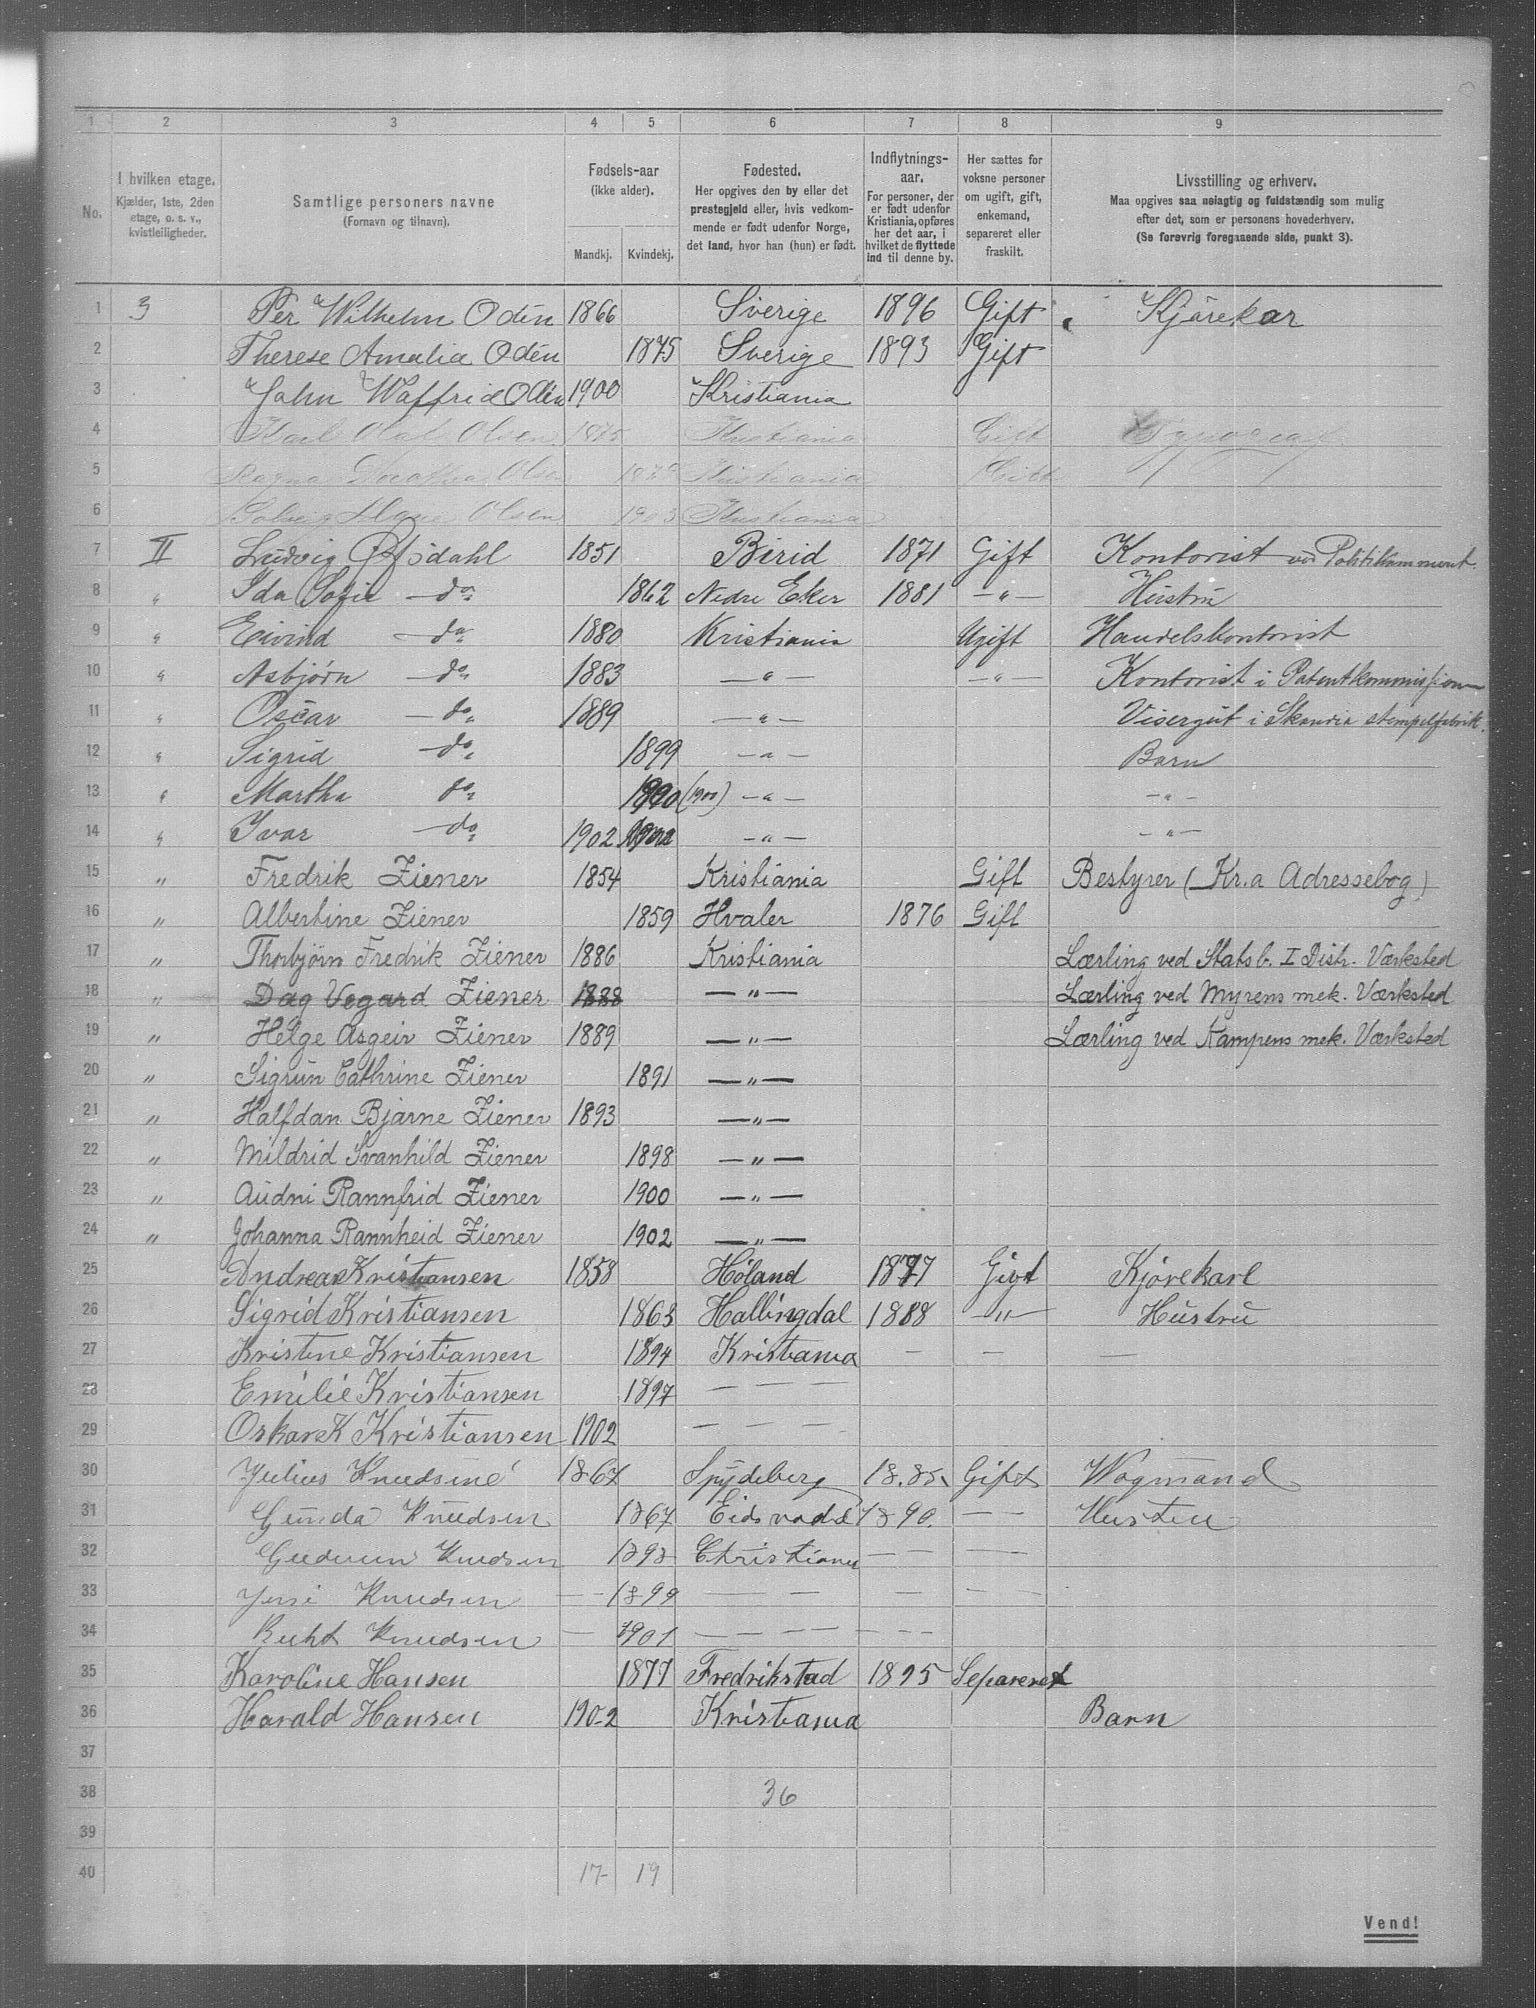 1 2 3 4 5 6 7 8 9
No.
I hvilken etage.
Kjælder, 1ste, 2den
etage, o. s. v.,
kvistleiligheder.
Samtlige personers navne
(Fornavn og tilnavn).
Fødsels-aar
(ikke alder).
Mandkj. Kvindekj.
Fødested.
Her opgives den by eller det
prestegjeld eller, hvis vedkom-
mende er født udenfor Norge,
det land, hvor han (hun) er født.
Indflytnings-
aar.
For personer, der
er født udenfor
Kristiania, opføres
her det aar, i
hvilket de flyttede
ind til denne by.
Her sættes for
voksne personer
om ugift, gift,
enkemand,
separeret eller
fraskilt.
Livsstilling og erhverv.
Maa opgives saa nøiagtig og fuldstændig som mulig
efter det, som er personens hovederhverv.
(Se forøvrig foregaaende side, punkt 3).
1 3 Per Wilhelm Odén 1866 Sverige 1896 Gift Kjørekar
2 Therese Amalia Odén 1875 Sverige 1893 Gift
3 John Waffrid Odén 1900 Kristiania
4 Karl Olaf Olsen 1875 Kristiania Gift Typograf
5 Ragna Dorothea Olsen Kristiania Gift
6 Solveig Olsen 1903 Kristiania
7 II Ludvig 1851 Birid 1871 Gift Kontorist ved Politikammeret.
8 " Ida Sofie - do " 1862 Nedre Eker 1881 - " - Hustru
9 " Eivind - do " 1880 Kristiania Ugift Handelskontorist
10 " Asbjørn - do " 1883 - " - - " - Kontorist i Patentkommission
11 " Oscar - do " 1889 - " - Visergut i Skandia stempelfabrik.
12 " Sigrid - do " 1899 - " - Barn
13 " Martha do " 1900 (1900) - " - - " -
14 " Ivar - do " 1902 1902 - " - - " -
15 " Fredrik Ziener 1854 Kristiania Gift Bestyrer (Kr.a Adressebog)
16 " Albertine Ziener 1859 Hvaler 1876 Gift
17 " Thorbjørn Fredrik Ziener 1886 Kristiania Lærling ved Statsb. I Distr. Værksted
18 " Dag Vegard Ziener 1888 - " - Lærling ved Myrens mek. Værksted
19 " Helge Asgeir Ziener 1889 - " - Lærling ved Kampens mek. Værksted
20 " Sigrun Cathrine Ziener 1891 - " -
21 " Halfdan Bjarne Ziener 1893 - " -
22 " Mildrid Svanhild Ziener 1898 - " -
23 " Audni Rannfrid Ziener 1900 - " -
24 " Johanna Rannheid Ziener 1902 - " -
25 Andreas Kristiansen 1858 Høland 1877 Givt Kjørekarl
26 Sigrid Kristiansen 1863 Hallingdal 1888 - " - Hustru
27 Kristine Kristiansen 1894 Kristiania - - -
28 Emilie Kristiansen 1897 - - -
29 Oskar K Kristiansen 1902 - - -
30 Julius Knudsen 1867 Spydeberg 1885 Gift Vogmand
31 Gunda Knudsen 1867 Eidsvold 1890. - - Hustru
32 Gudrun Knudsen 1893 Christiania - - - -
33 Knudsen - - 1899 - - - - - -
34 Knudsen - 1901 - - - - - - -
35 Karoline Hansen 1877 Fredrikstad 1895 Separeret
36 Harald Hansen 1902 Kristiania Barn
37
38 36
39
40 17- 19
Vend!